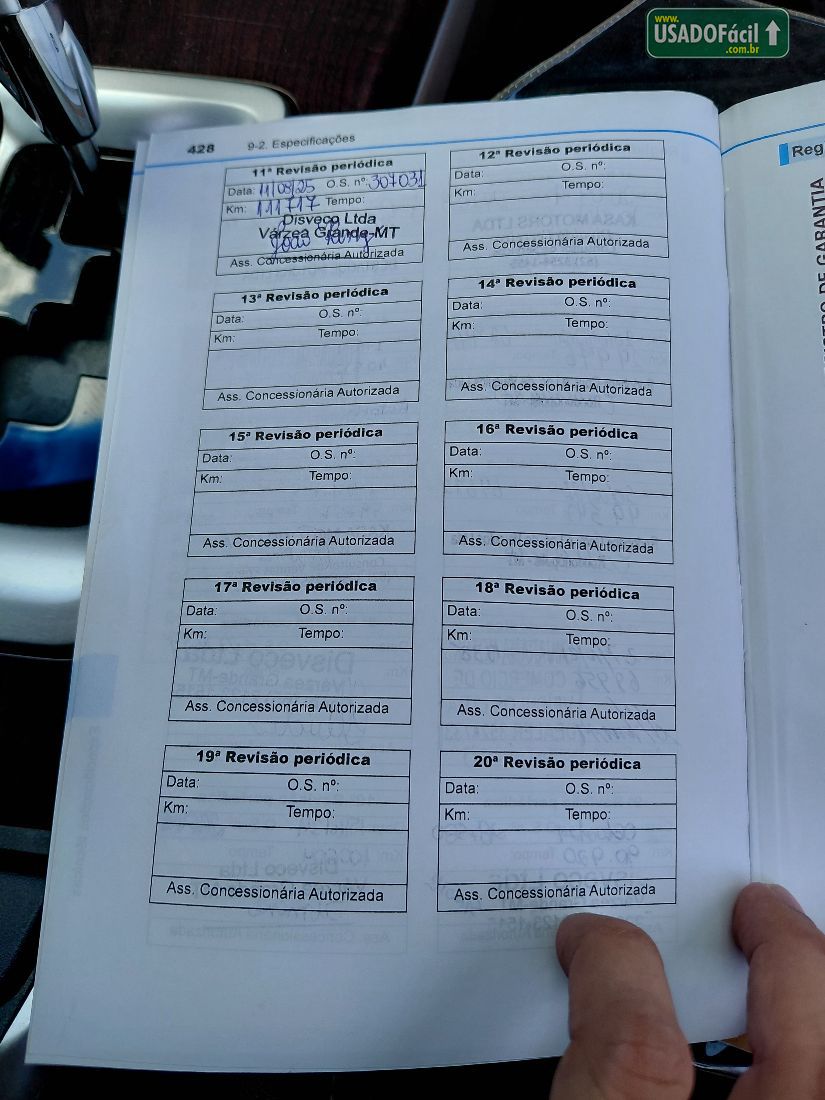 www.
USADOFácil
.com.br
428 9-2. Especificações
11ª Revisão periódica
Data: 11/08/25 O.S. nº: 307031
Km: 111717 Tempo:
Disveco Ltda
Várzea Grande-MT
Ass. Concessionária Autorizada
12ª Revisão periódica
Data: O.S. nº:
Km: Tempo:
Ass. Concessionária Autorizada
13ª Revisão periódica
Data: O.S. nº:
Km: Tempo:
Ass. Concessionária Autorizada
14ª Revisão periódica
Data: O.S. nº:
Km: Tempo:
Ass. Concessionária Autorizada
15ª Revisão periódica
Data: O.S. nº:
Km: Tempo:
Ass. Concessionária Autorizada
16ª Revisão periódica
Data: O.S. nº:
Km: Tempo:
Ass. Concessionária Autorizada
17ª Revisão periódica
Data: O.S. nº:
Km: Tempo:
Ass. Concessionária Autorizada
18ª Revisão periódica
Data: O.S. nº:
Km: Tempo:
Ass. Concessionária Autorizada
19ª Revisão periódica
Data: O.S. nº:
Km: Tempo:
Ass. Concessionária Autorizada
20ª Revisão periódica
Data: O.S. nº:
Km: Tempo:
Ass. Concessionária Autorizada
Reg
DE GARANTIA